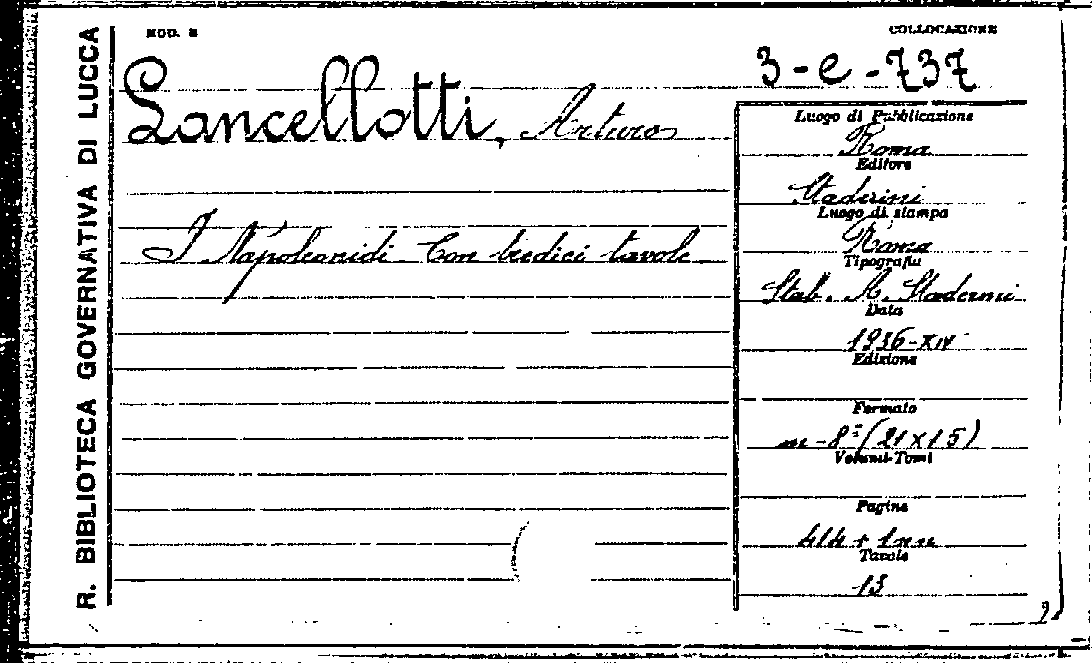 R. BIBLIOTECA GOVERNATIVA DI LUCCA
MOD. 2
COLLOCAZIONE
3-e-737
Lancellotti, Arturo
I Napoleonidi. Con tredici tavole.
Luogo di Pubblicazione
Roma
Editore
Staderini
Luogo di stampa
Roma
Tipografia
Stab. A. Staderini
Data
1936-XIV
Edizione
Formato
in-8º (21x15)
Volumi-Tomi
Pagine
414 + 1nn
Tavole
13